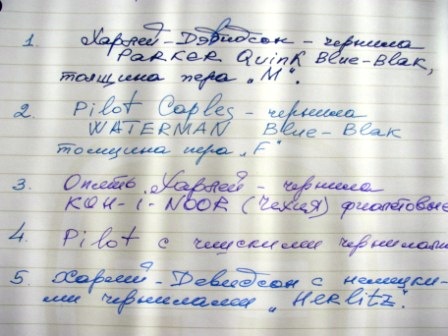 1 Харлей-Дэвидсон - чернила
PARKER Quink Blue-Blak,
толщина пера „М".
2. Pilot Caples - чернила
WATERMAN Blue-Blak
толщина пера „F"
3. Опять „Харлей - чернила
KOH-I-NOOR (Чехия) фиолетовые
4. Pilot с чешскими чернилами
5. Харлей-Девидсон с немецки-
ми чернилами „Herlitz".